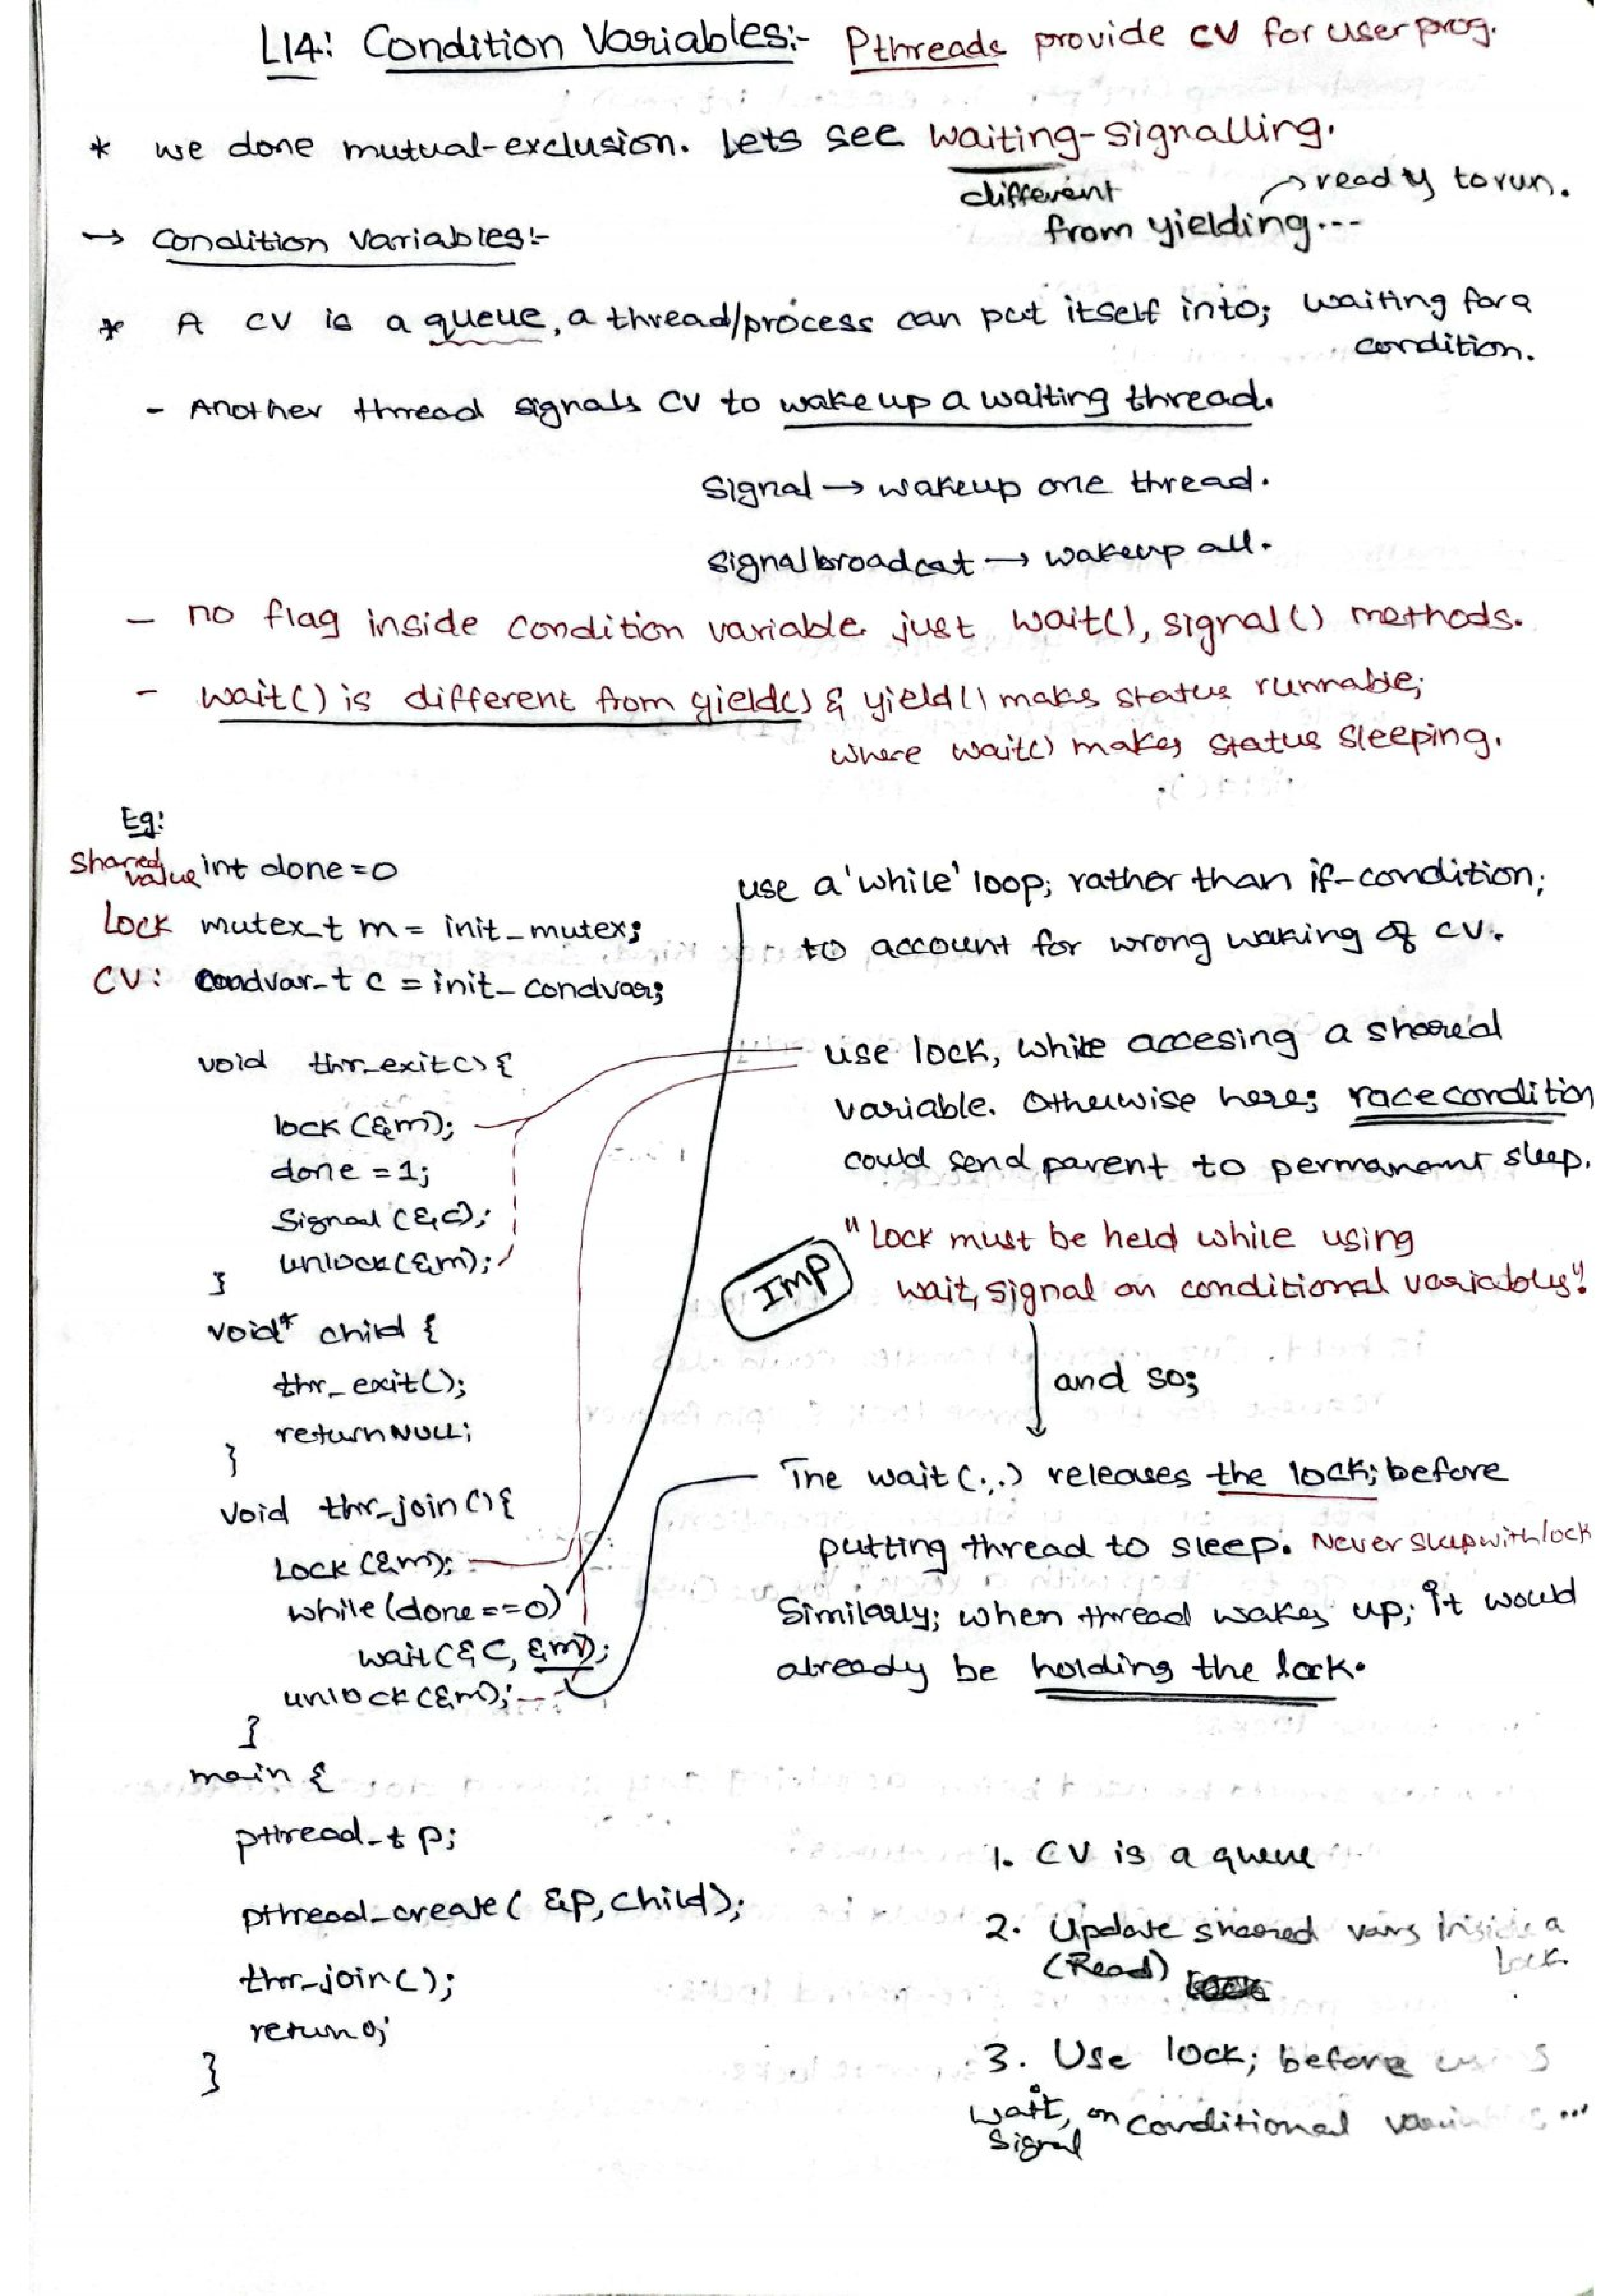 L14: Condition Variables:- Pthreads provide CV for user prog.
* we done mutual-exclusion. Lets see waiting-signalling.
different from yielding... → ready to run.
→ Condition Variables:-
* A CV is a queue, a thread/process can put itself into; waiting for a
condition.
- Another thread signals CV to wakeup a waiting thread.
Signal → wakeup one thread.
Signalbroadcat → wakeup all.
- no flag inside condition variable. just wait(), signal() methods.
- wait() is different from yield() & yield() makes status runnable;
where wait() makes status sleeping.
Eg:
Shared value int done=0
Lock mutex_t m = init_mutex;
CV: condvar_t c = init_condvar;
void thr_exit() {
lock (&m);
done = 1;
Signal (&c);
unlock (&m);
}
void* child {
thr_exit();
return NULL;
}
void thr_join() {
Lock (&m);
while (done==0)
wait (&c, &m);
unlock (&m);
}
main {
pthread_t p;
pthread_create ( &p, child);
thr_join();
return 0;
}
use a 'while' loop; rather than if-condition;
to account for wrong waking of CV.
use lock, while accesing a shared
variable. Otherwise here; race condition
could send parent to permanent sleep.
Imp
"Lock must be held while using
wait, signal on conditional variables"
and so;
The wait (.,.) releases the lock; before
putting thread to sleep. Never sleep with lock
Similarly; when thread wakes up; it would
already be holding the lock.
1. CV is a queue
2. Update shared vars inside a
(Read) lock.
3. Use lock; before using
wait, signal on conditional variables ...